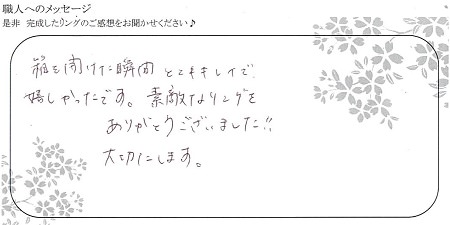 職人へのメッセージ
是非 完成したリングのご感想をお聞かせください♪
箱を開けた瞬間 とてもキレイで
嬉しかったです。素敵なリングを
ありがとうございました!!
大切にします。